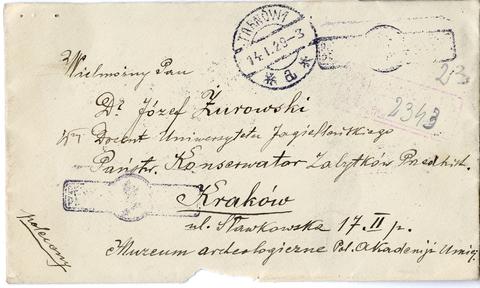 TARNÓW 1
14.I.29-3
* d *
23
2343
Wielmożny Pan
Dr. Józef Żurowski
Docent Uniwersytetu Jagiellońskiego
Państw. Konserwator Zabytków Przedhist.
Kraków
ul. Sławkowska 17. II p.
Muzeum archeologiczne Pol. Akademji Umiej.
polecony